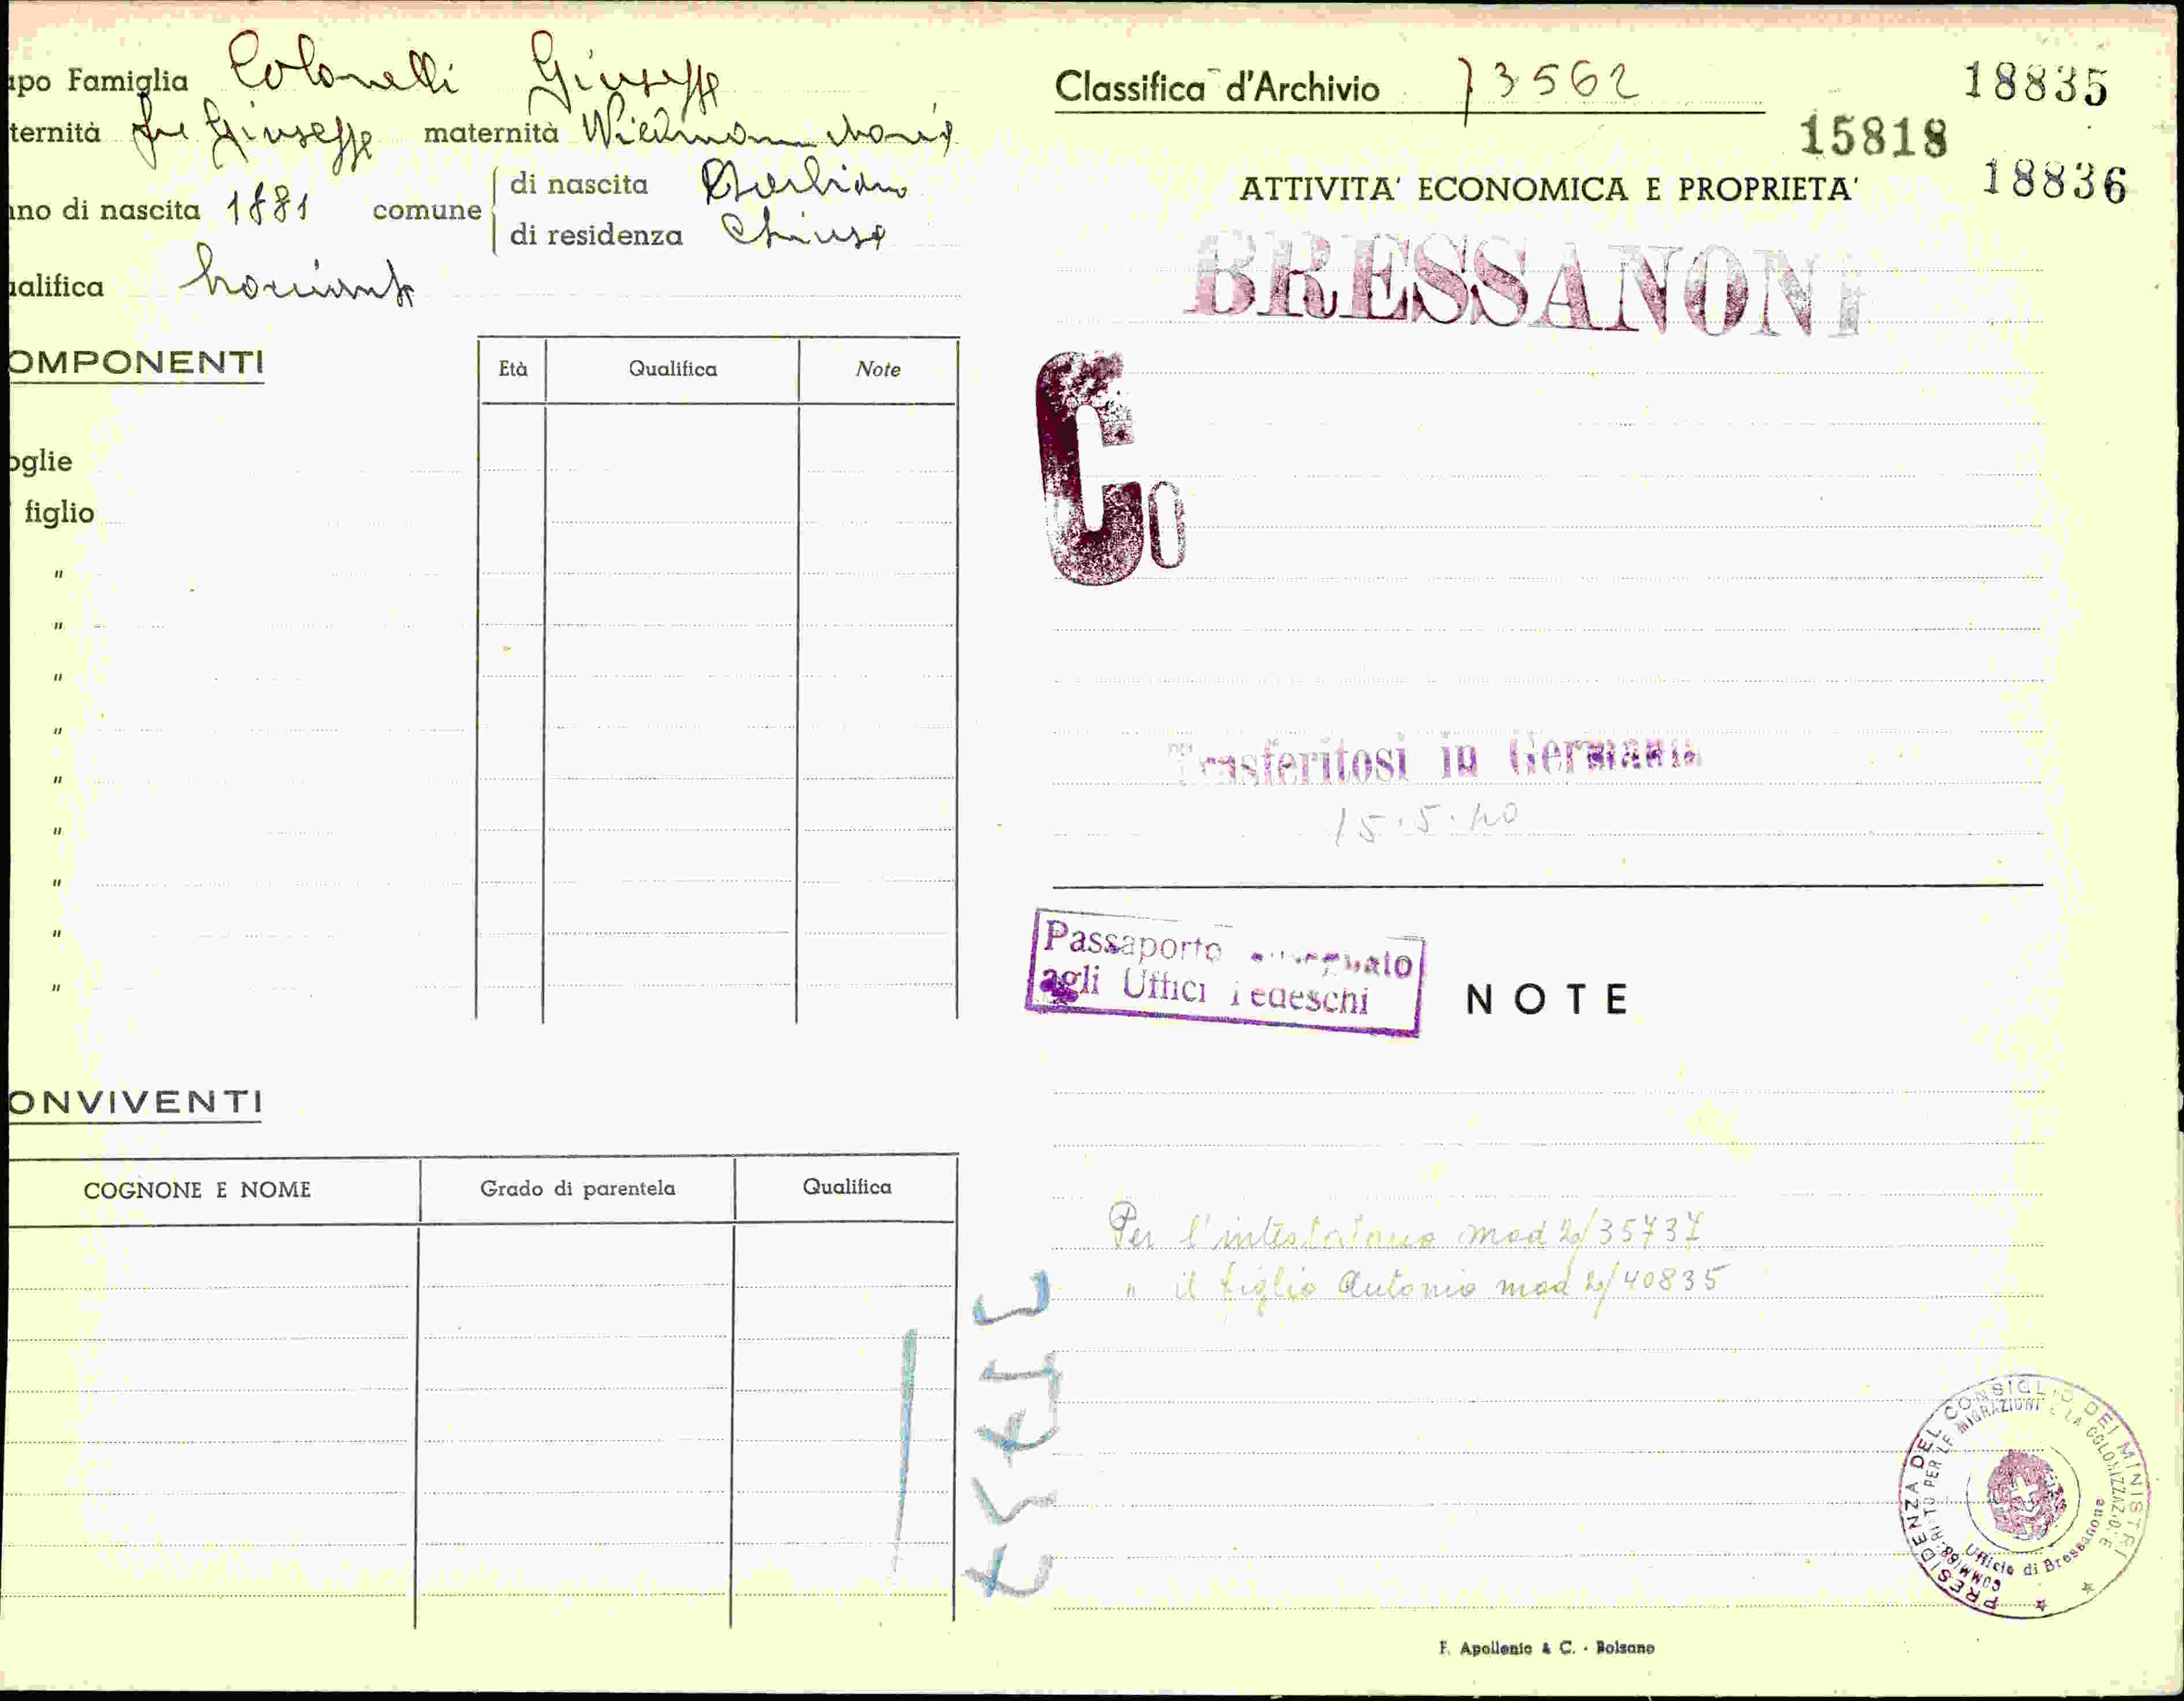 apo Famiglia Colonelli Giuseppe
ternità fu Giuseppe maternità Maria
nno di nascita 1881 comune di nascita Barbiano
di residenza Chiusa
ualifica
OMPONENTI
Età Qualifica Note
oglie
figlio
"
"
"
"
"
"
"
"
"
ONVIVENTI
COGNONE E NOME Grado di parentela Qualifica
Classifica d'Archivio 73562
18835
15818
18836
ATTIVITA' ECONOMICA E PROPRIETA'
BRESSANONE
Co
Trasferitosi in Germania
15.5.40
Passaporto
agli Uffici Tedeschi
NOTE
Per l'intestatario mod 2/35737
" il figlio Antonio mod 2/40835
PRESIDENZA DEL CONSIGLIO DEI MINISTRI
COMMISSARIATO PER LE MIGRAZIONI E LA COLONIZZAZIONE
Ufficio di Bressanone
F. Apollonio & C. - Bolzano